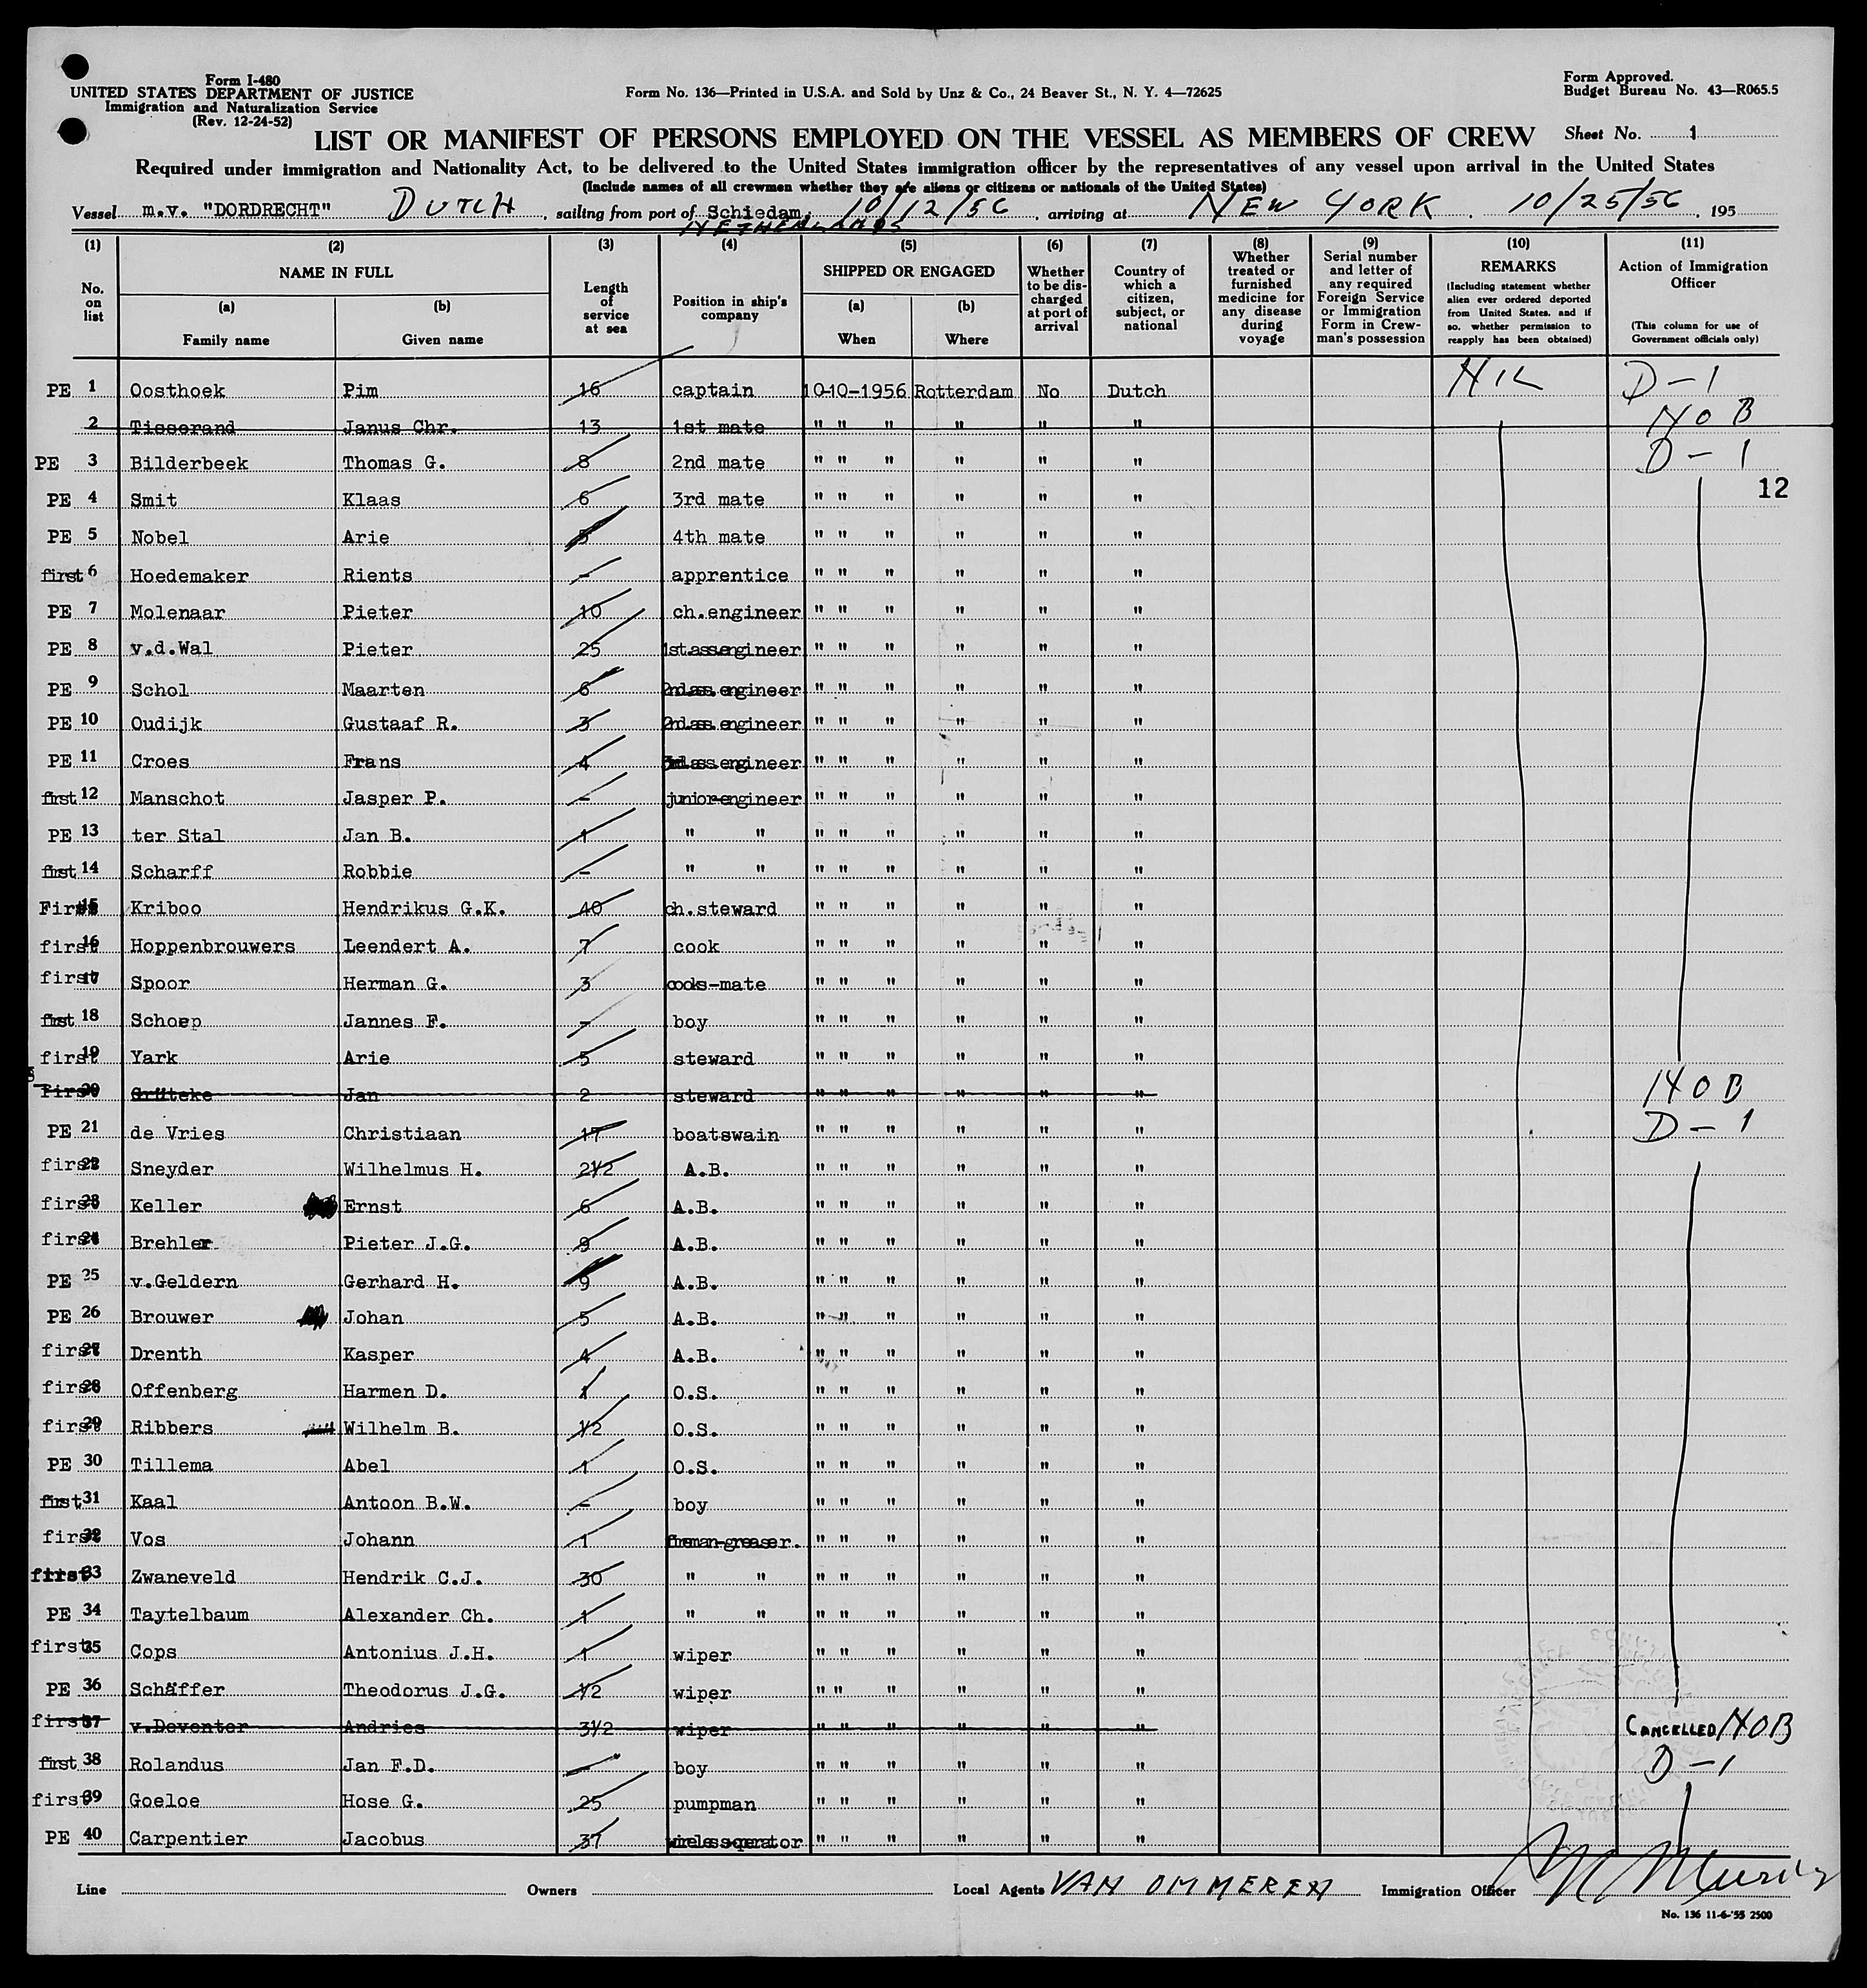 Form I-480
UNITED STATES DEPARTMENT OF JUSTICE
Immigration and Naturalization Service
(Rev. 12-24-52)
Form No. 136—Printed in U.S.A. and Sold by Unz & Co., 24 Beaver St., N. Y. 4—72625
Form Approved.
Budget Bureau No. 43—R065.5
LIST OR MANIFEST OF PERSONS EMPLOYED ON THE VESSEL AS MEMBERS OF CREW Sheet No. 1
Required under immigration and Nationality Act, to be delivered to the United States immigration officer by the representatives of any vessel upon arrival in the United States
(Include names of all crewmen whether they are aliens or citizens or nationals of the United States)
Vessel m.v. "DORDRECHT" DUTCH, sailing from port of Schiedam, 10/12/56, arriving at NEW YORK. 10/25/56, 195
NETHERLANDS
(1) (2) (3) (4) (5) (6) (7) (8) (9) (10) (11)
No. on list
NAME IN FULL
(a) Family name
(b) Given name
Length of service at sea
Position in ship's company
SHIPPED OR ENGAGED
(a) When
(b) Where
Whether to be discharged at port of arrival
Country of which a citizen, subject, or national
Whether treated or furnished medicine for any disease during voyage
Serial number and letter of any required Foreign Service or Immigration Form in Crewman's possession
REMARKS
(Including statement whether alien ever ordered deported from United States, and if so, whether permission to reapply has been obtained)
Action of Immigration Officer
(This column for use of Government officials only)
PE 1 Oosthoek Pim 16 captain 10-10-1956 Rotterdam No Dutch NIL D-1
2 Tisserand Janus Chr. 13 1st mate " " " " " " NOB
PE 3 Bilderbeek Thomas G. 8 2nd mate " " " " " " D-1
PE 4 Smit Klaas 6 3rd mate " " " " " " 12
PE 5 Nobel Arie 5 4th mate " " " " " "
first 6 Hoedemaker Rients - apprentice " " " " " "
PE 7 Molenaar Pieter 10 ch.engineer " " " " " "
PE 8 v.d.Wal Pieter 25 1st.ass.engineer " " " " " "
PE 9 Schol Maarten 6 2nd.ass.engineer " " " " " "
PE 10 Oudijk Gustaaf R. 3 2nd.ass.engineer " " " " " "
PE 11 Croes Frans 4 3rd.ass.engineer " " " " " "
first 12 Manschot Jasper P. - junior-engineer " " " " " "
PE 13 ter Stal Jan B. 1 " " " " " " " "
first 14 Scharff Robbie - " " " " " " " "
First 15 Kriboo Hendrikus G.K. 40 ch.steward " " " " " "
first 16 Hoppenbrouwers Leendert A. 7 cook " " " " " "
first 17 Spoor Herman G. 3 cooks-mate " " " " " "
first 18 Schoep Jannes F. - boy " " " " " "
first 19 Yark Arie 5 steward " " " " " "
first 20 Grüteke Jan 2 steward " " " " " " NOB
PE 21 de Vries Christiaan 17 boatswain " " " " " " D-1
first 22 Sneyder Wilhelmus H. 2½ A.B. " " " " " "
first 23 Keller Ernst 6 A.B. " " " " " "
first 24 Brehler Pieter J.G. 9 A.B. " " " " " "
PE 25 v.Geldern Gerhard H. 9 A.B. " " " " " "
PE 26 Brouwer Johan 5 A.B. " " " " " "
first 27 Drenth Kasper 4 A.B. " " " " " "
first 28 Offenberg Harmen D. 1 O.S. " " " " " "
first 29 Ribbers Wilhelm B. ½ O.S. " " " " " "
PE 30 Tillema Abel 1 O.S. " " " " " "
first 31 Kaal Antoon B.W. - boy " " " " " "
first 32 Vos Johann 1 fireman-greaser. " " " " " "
first 33 Zwaneveld Hendrik C.J. 30 " " " " " " " "
PE 34 Taytelbaum Alexander Ch. 1 " " " " " " " "
first 35 Cops Antonius J.H. 1 wiper " " " " " "
PE 36 Schäffer Theodorus J.G. ½ wiper " " " " " "
first 37 v.Deventer Andries 3½ wiper " " " " " " CANCELLED NOB
first 38 Rolandus Jan F.D. - boy " " " " " " D-1
first 39 Goeloe Hose G. 25 pumpman " " " " " "
PE 40 Carpentier Jacobus 37 wireless-operator " " " " " "
Line Owners Local Agents VAN OMMEREN Immigration Officer
No. 136 11-6-'55 2500